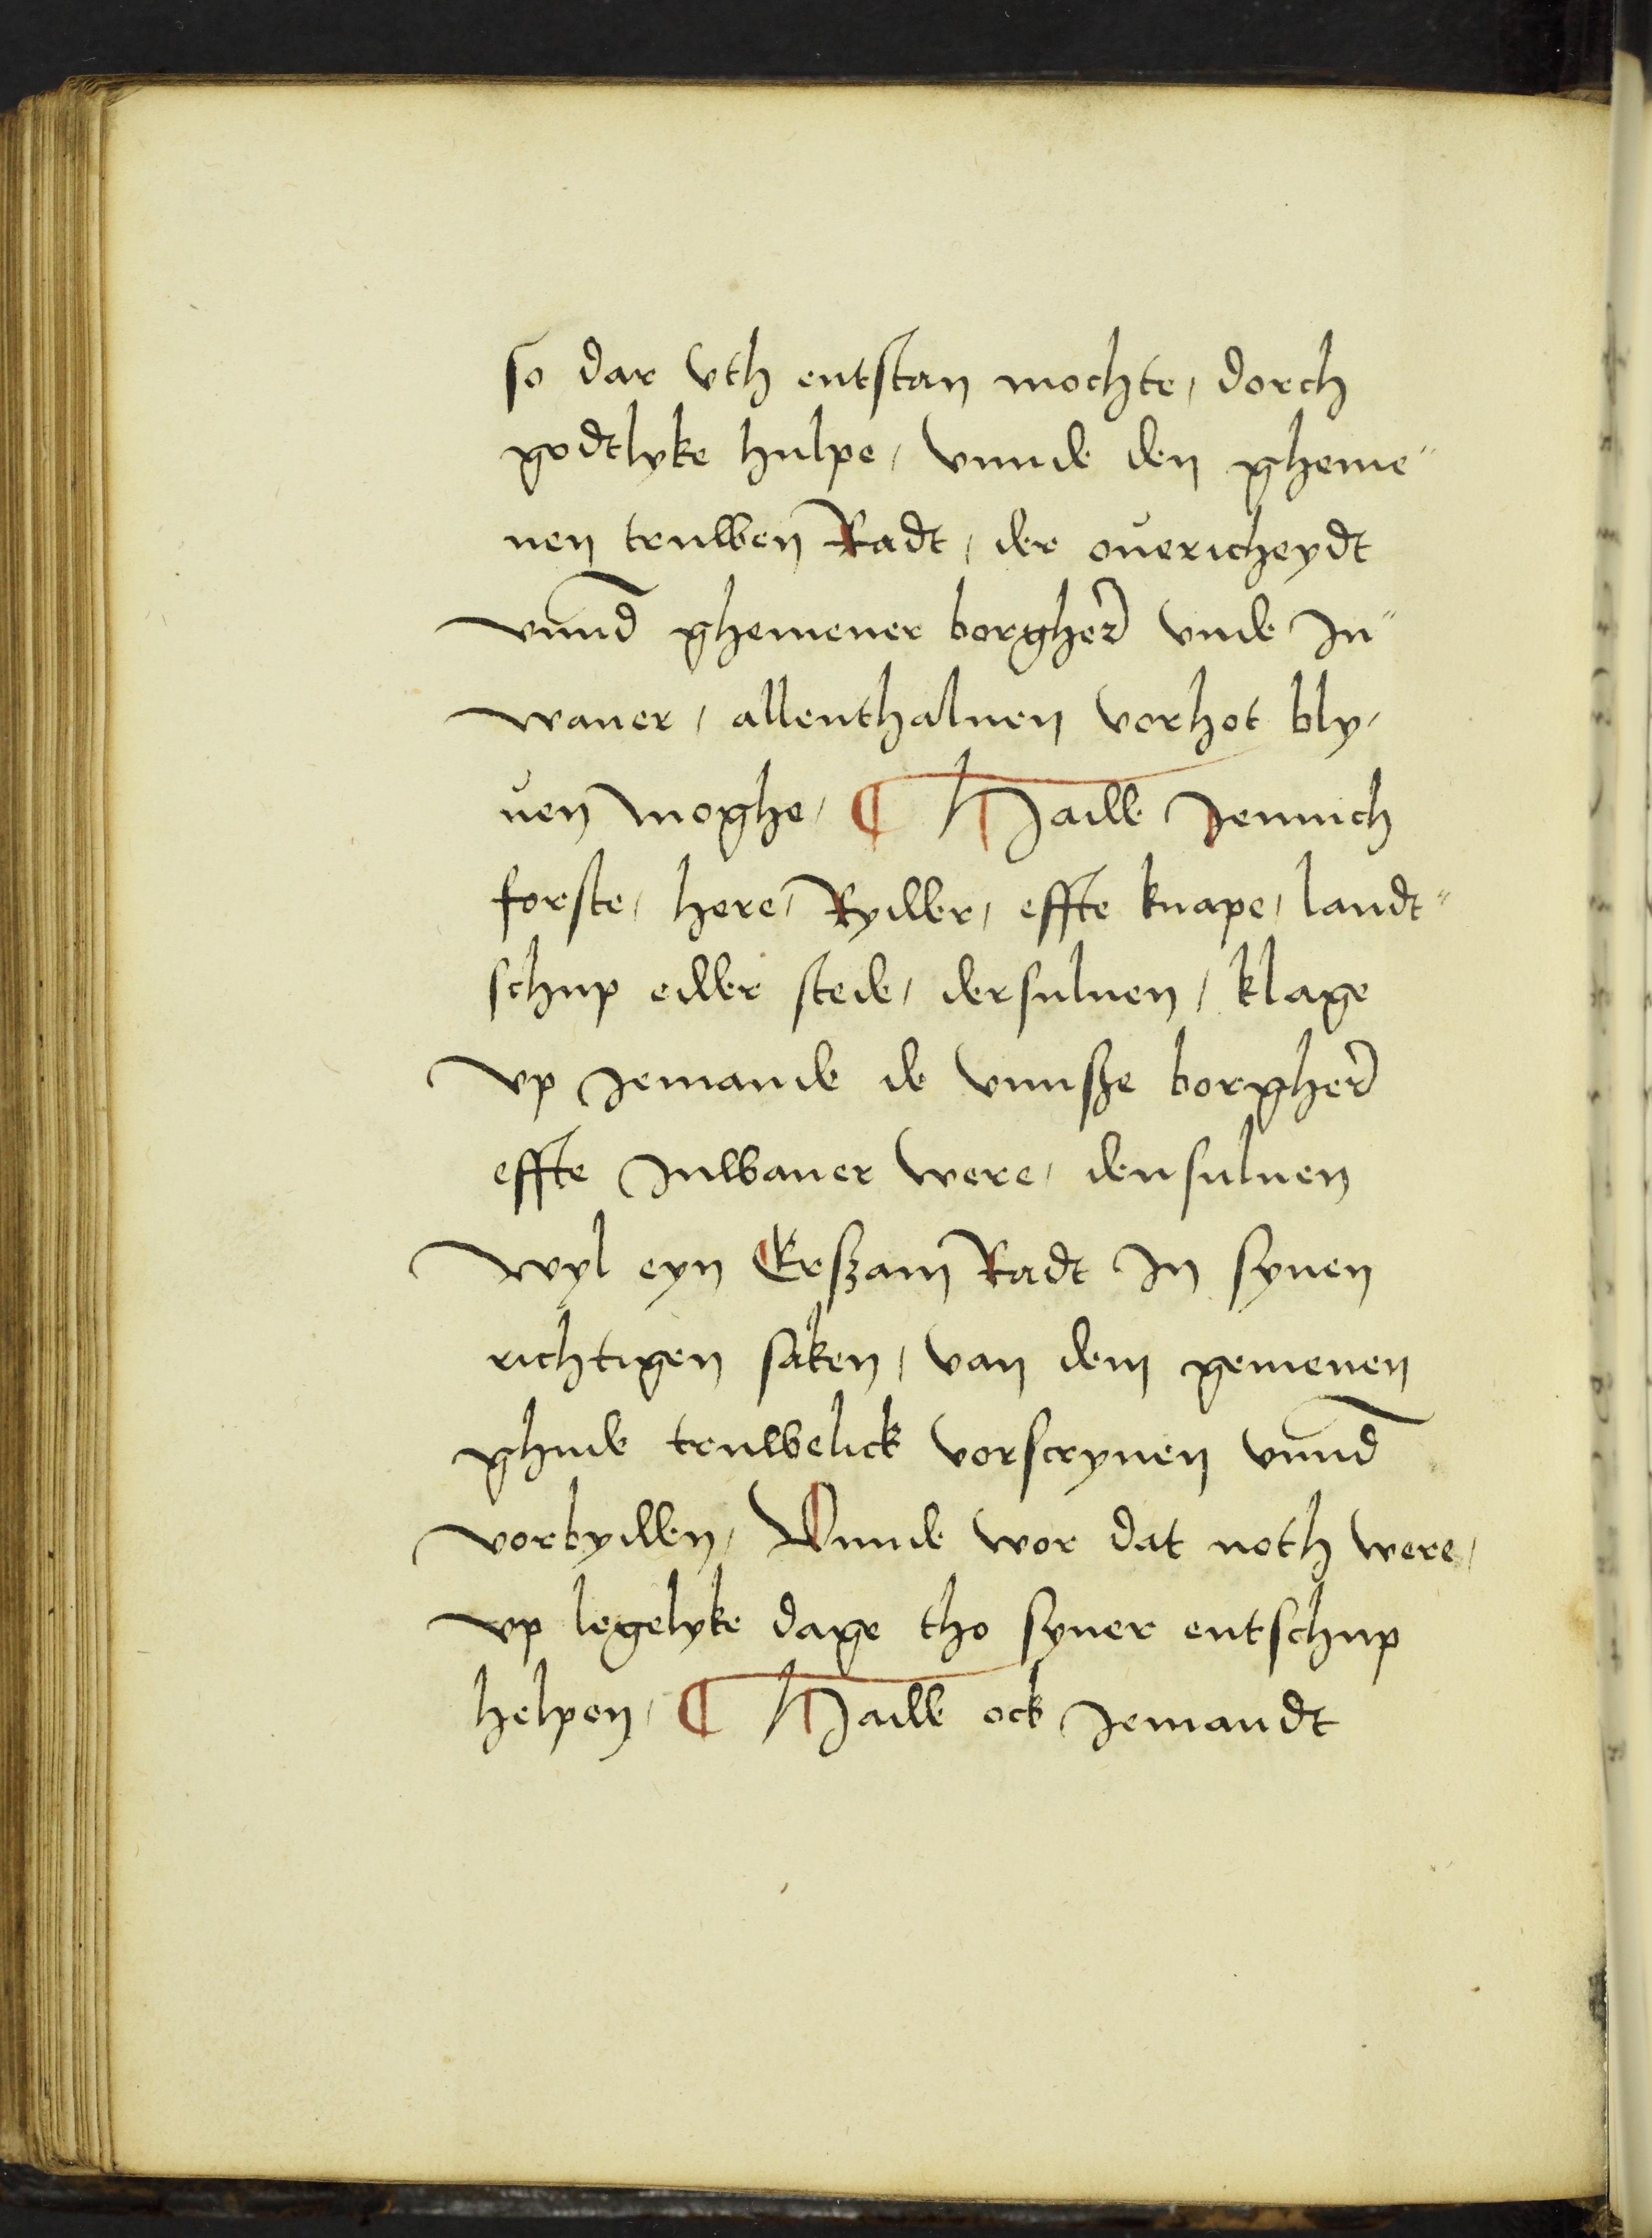 so dar vth entstan mochte, dorch
godtlyke hulpe, vnnde den gheme"
nen truwen Radt, der ouericheydt
vnnd ghemener borgher vnde In"
waner, allenthaluen vorhot bly,
uen moghe, ¶ Hadde Jennich
forste, here, Rydder, effte knape, landt"
schup edder stede, dersuluen, klage
vp Jemande de vnnsze borgher
effte Inwaner were, densuluen
wyl eyn Erszam Radt In synen
richtigen saken, van dem gemenen
ghude truwelick vorscryuen vnnd
vorbydden, Vnnde wor dat noth were,
vp legelyke dage tho syner entschup
helpen, ¶ Hadde ock Jemandt